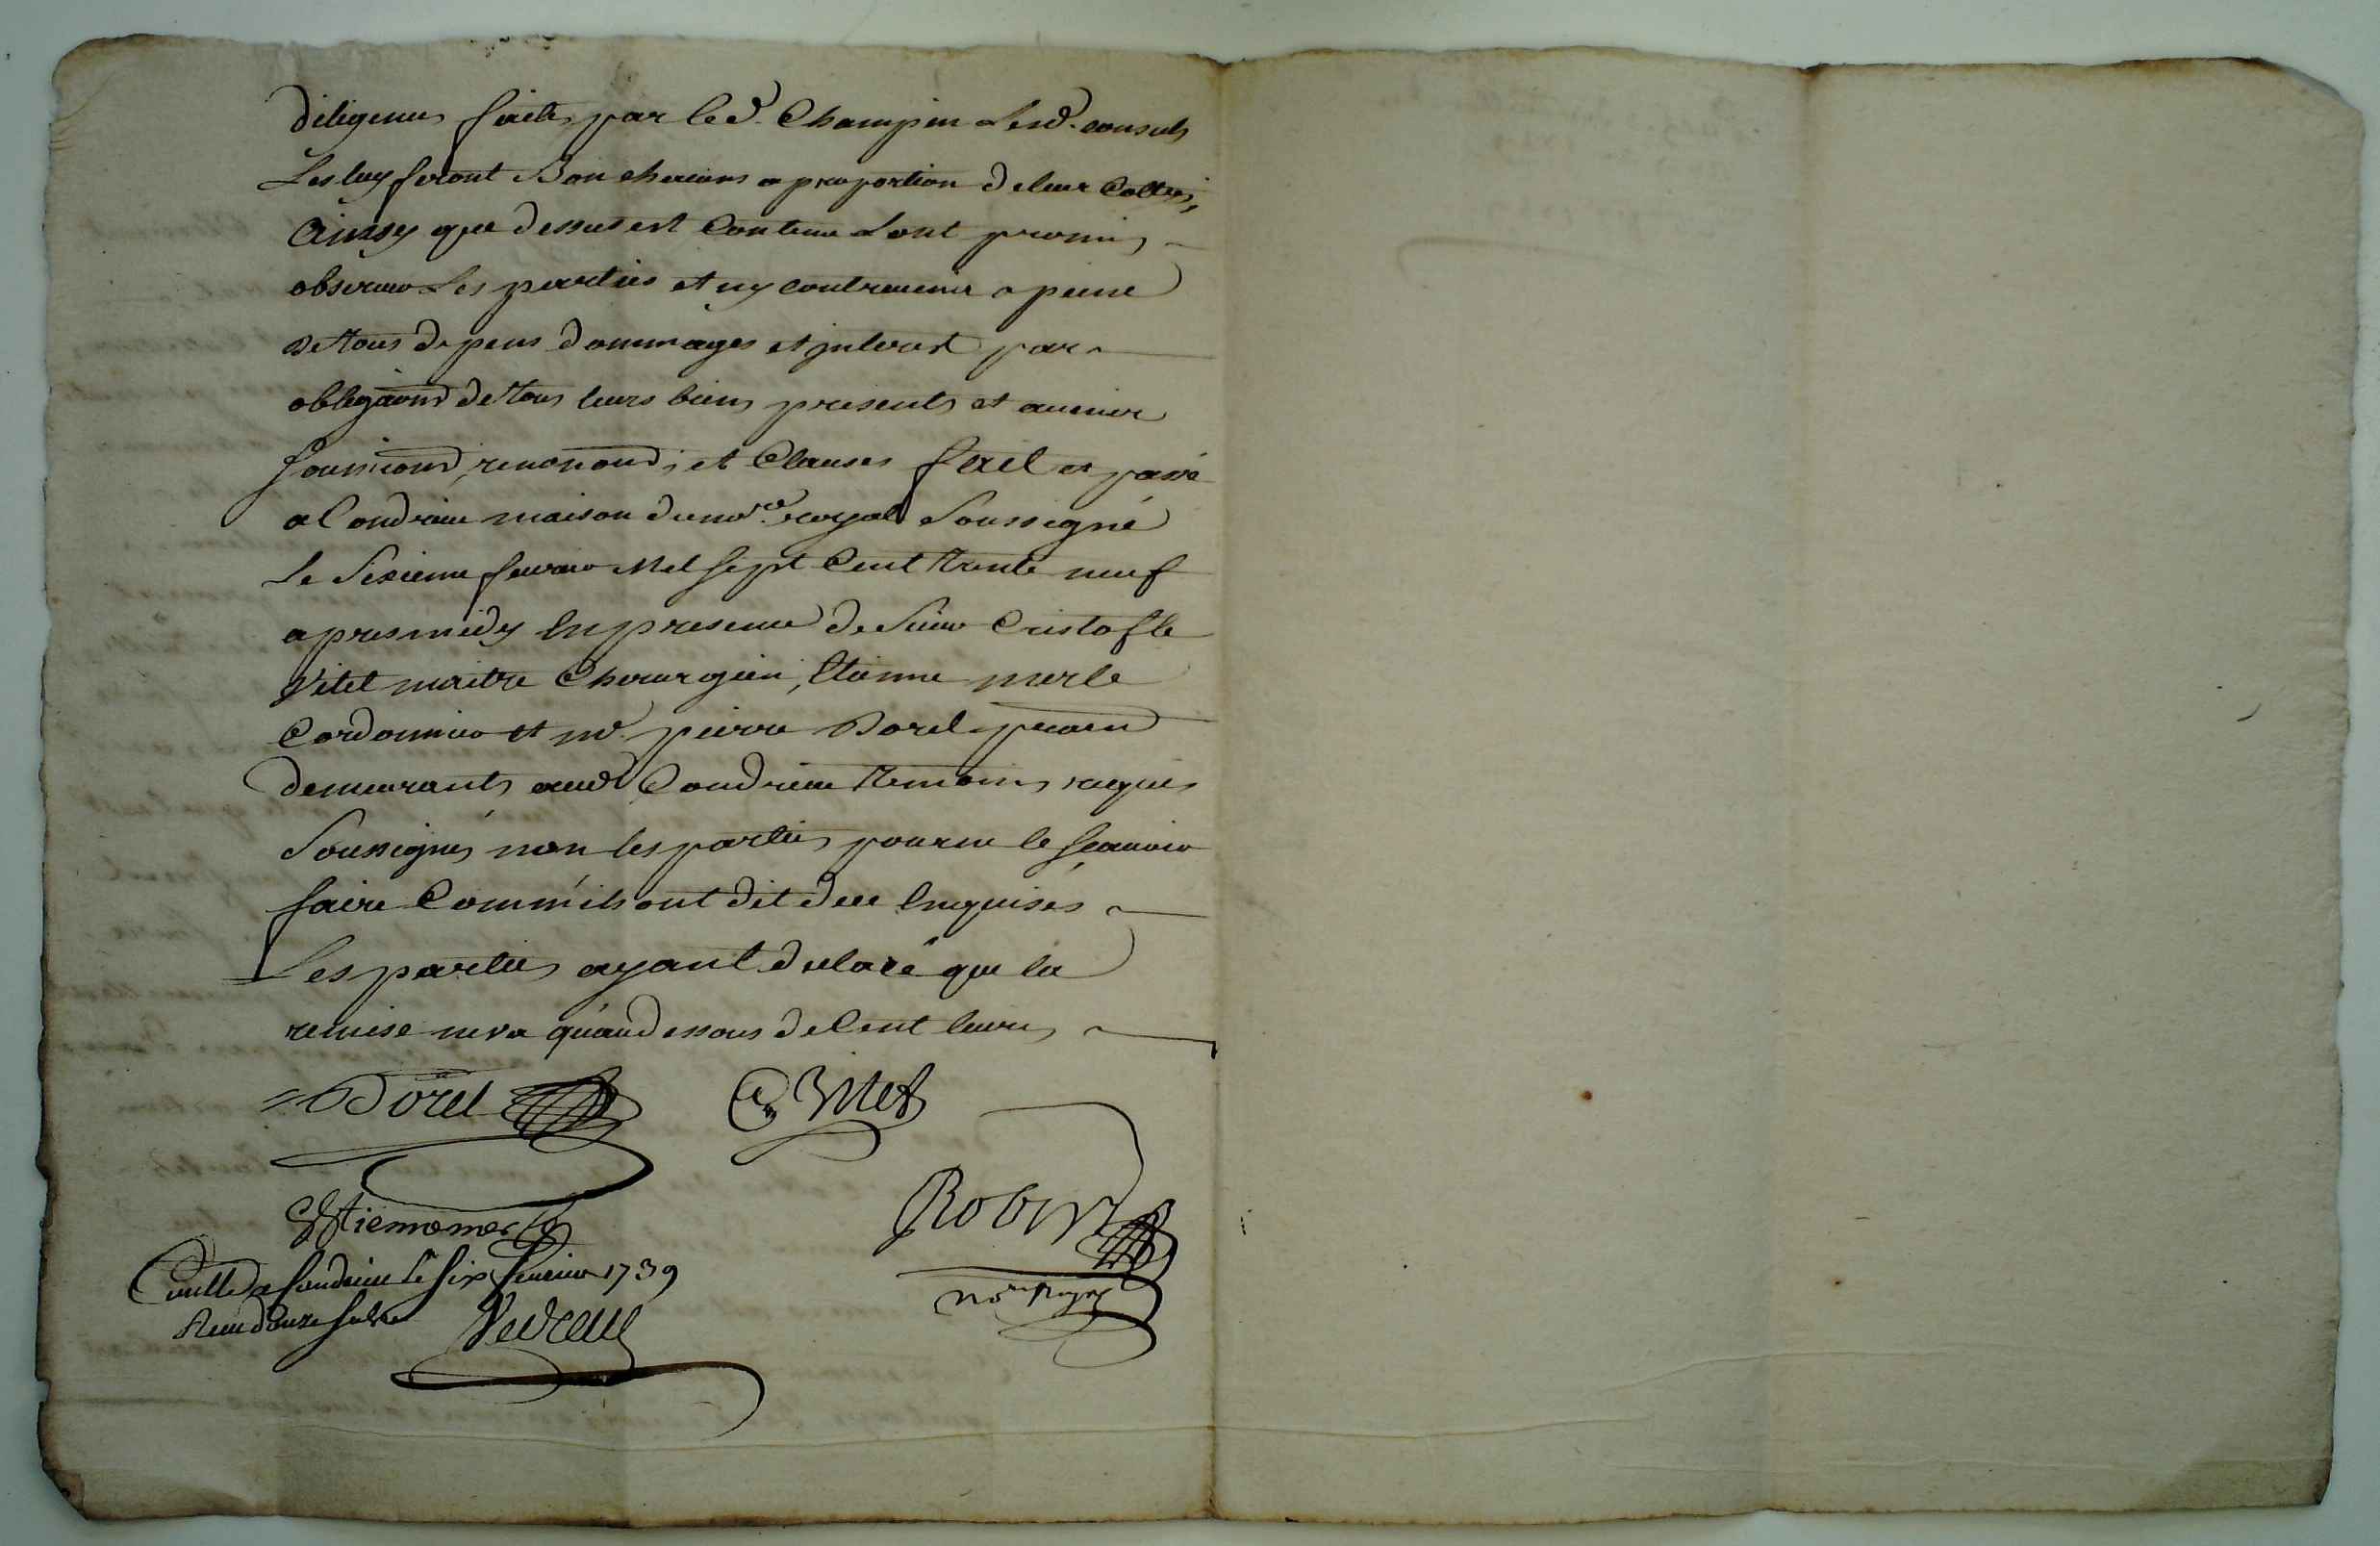 diligences faites par led. Champin Lesd. consuls
Les luy feront Bon chacuns a proportion de leur Cottes,
Ainsy que dessus est Contenu Lont promis
observer Les parties et ny contrevenir a peine
De tous depens dommages et interest par
obligaons de tous leurs biens presents et avenir
soumions, renonons, et Clauses fait et passé
a Condrieu maison du nore. royal Soussigné
Le Sixieme fevrier Mil sept Cent trente neuf
apres midy En presence de Sieur Cristofle
Vitet maitre Chirurgien, Etienne merle
Cordonnier et me. pierre Dorel praen
demeurants aud. Condrieu temoins requis
Soussignés non les parties pour ne le sçavoir
faire Comm'ils ont dit de ce Enquisés
Les parties ayant declaré que la
remise ne va qu'au dessous de Cent livres
Dorel C. Vitet
Estienne merle Robin
nore. Royal
Conllé a Condrieu le six fevrier 1739
Receu douze sols